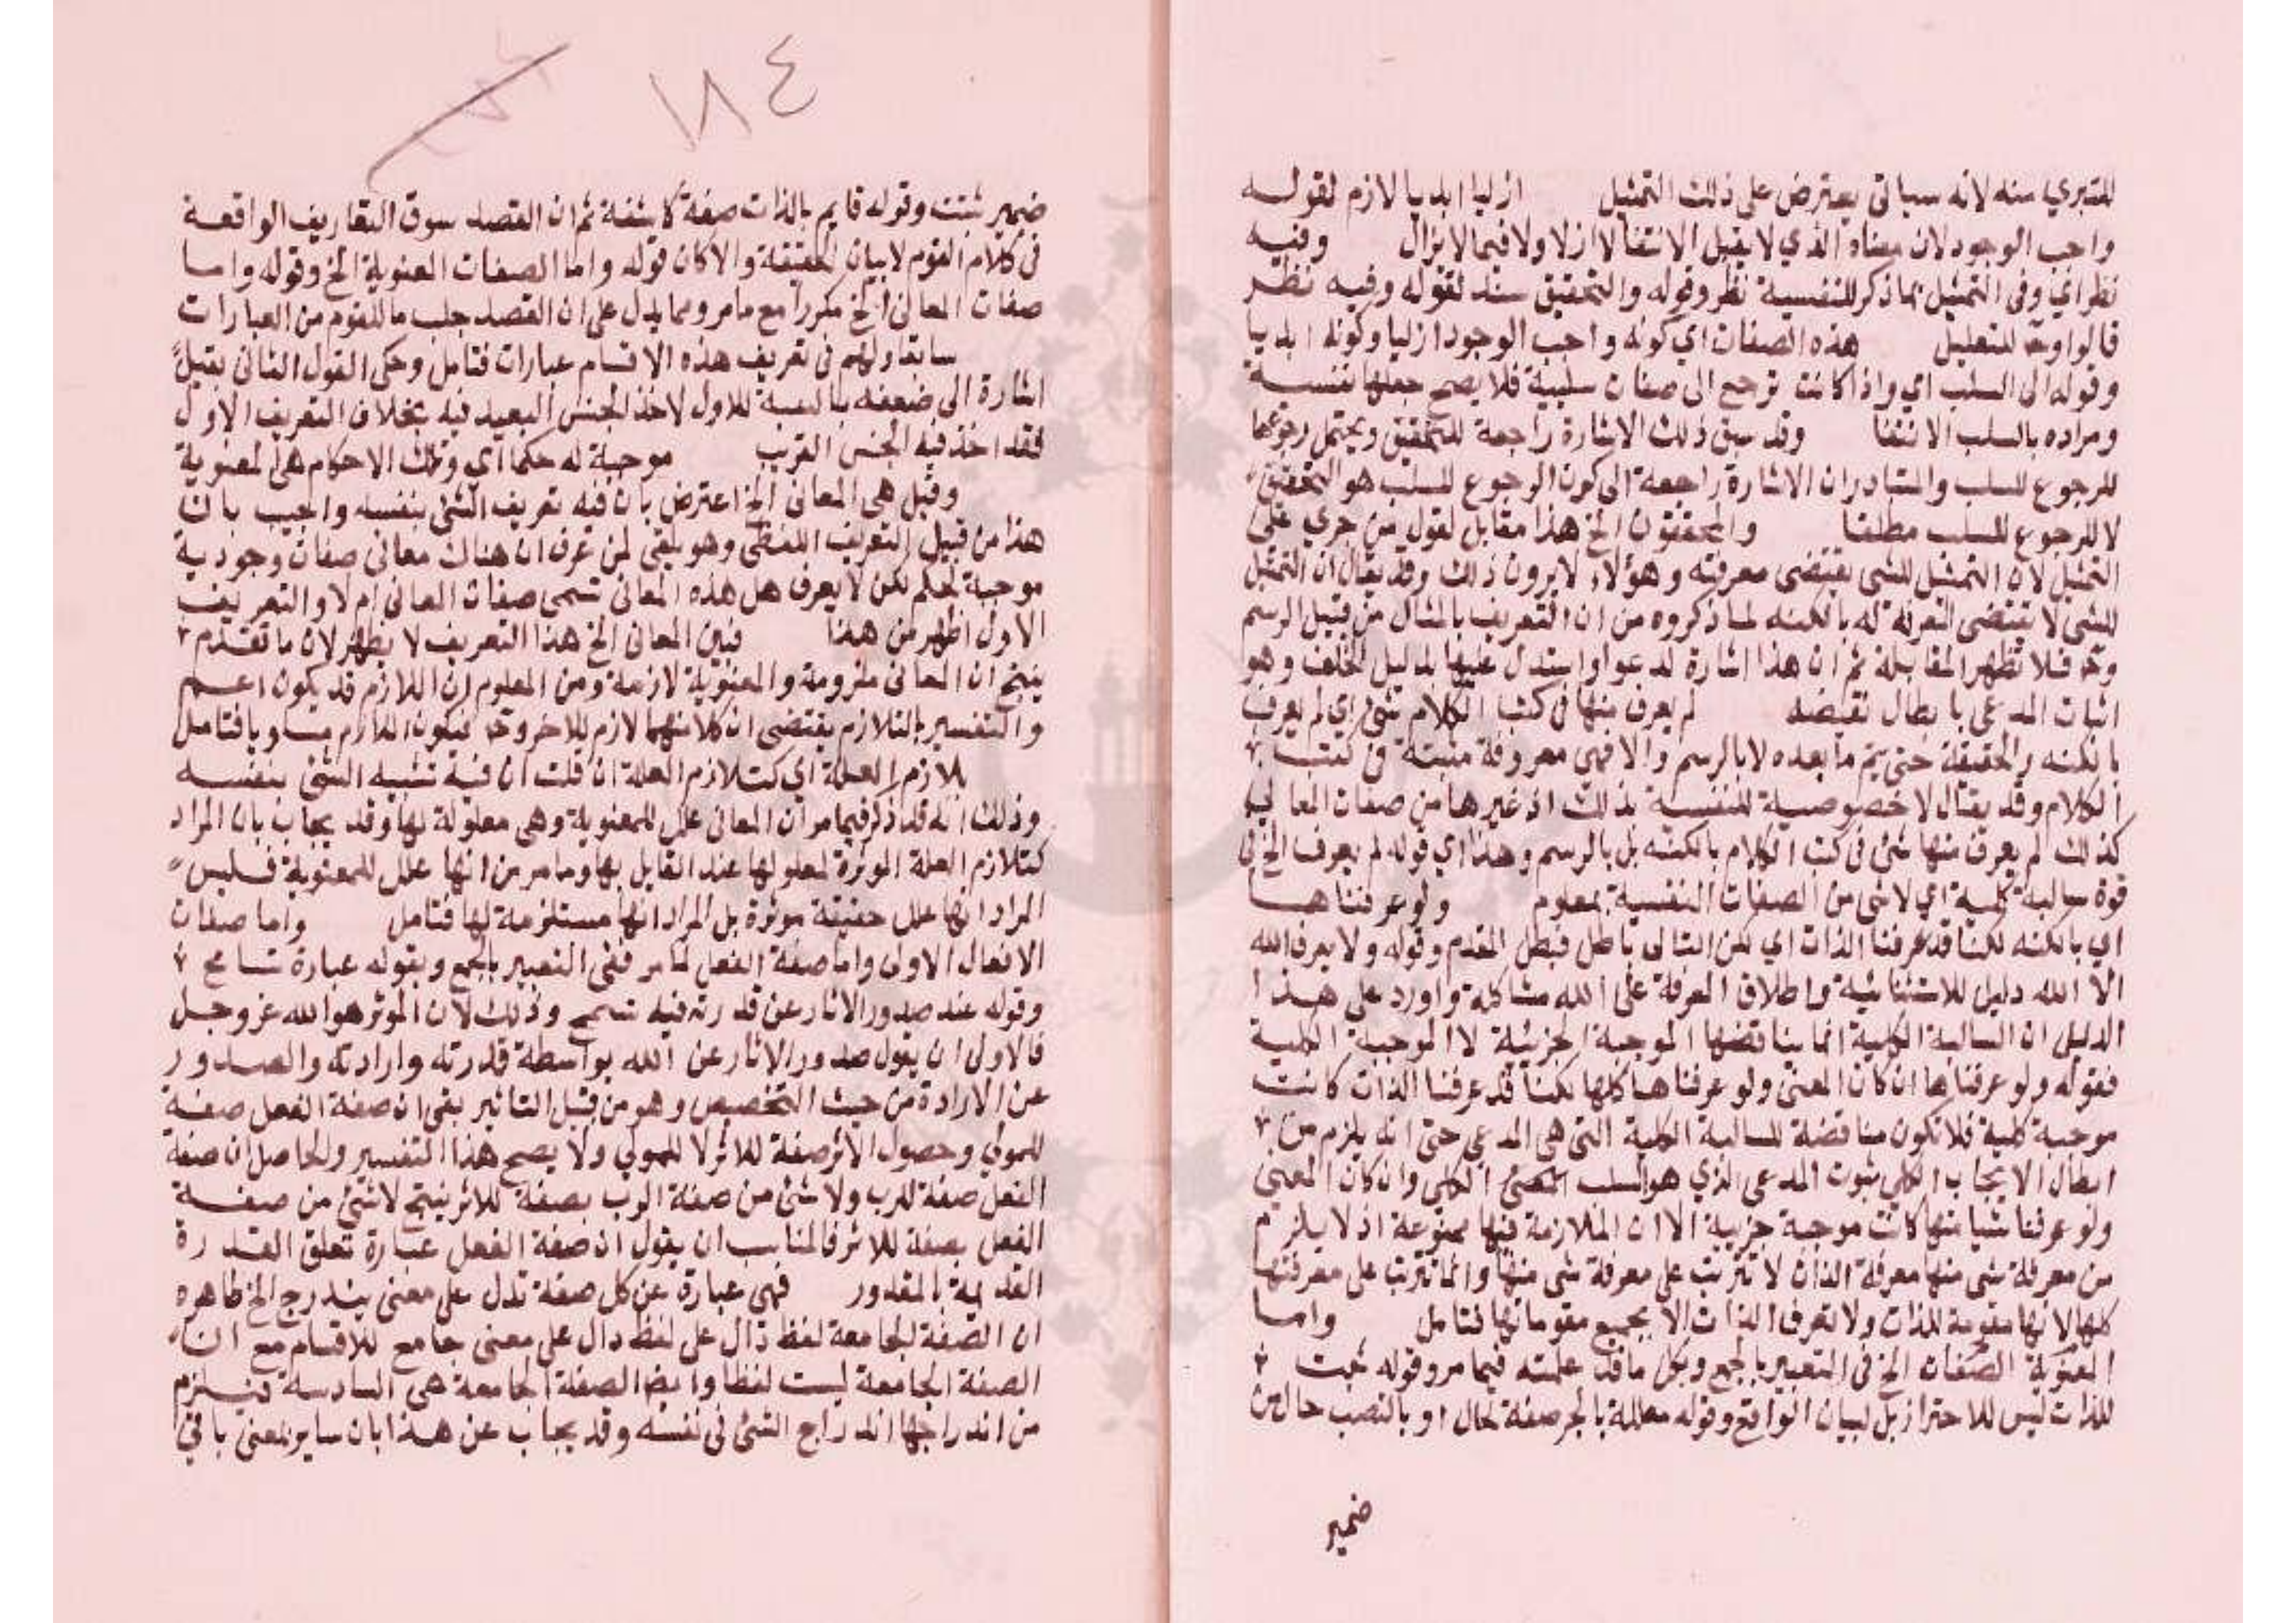 للتبري منه لانه سياتي يعترض على ذلك التمثيل ازليا ابديا لازم لقوله
واجب الوجود لان معناه الذي لا يقبل الانتفا لا ازلا ولا فيما لا يزال وفيه
نظر اي وفي التمثيل بما ذكر للنفسية نظر وقوله والتحقيق سند لقوله وفيه نظر
قالوا وح للتعليل هذه الصفات اي كونه واجب الوجود ازليا وكونه ابديا
وقوله الى السلب اي واذا كانت ترجع الى صفات سلبية فلا يصح جعلها نفسية
ومراده بالسلب الانتفا وقد سبق ذلك الاشارة راجعة للتحقيق ويحتمل رجوعها
للرجوع للسلب والمتبادر ان الاشارة راجعة الى كون الرجوع للسلب هو التحقيق
لا للرجوع للسلب مطلقا والمحققون الخ هذا مقابل لقول من جري على
التمثيل لان التمثيل للشي يقتضي معرفته وهؤلاء لا يرون ذلك وقد يقال ان التمثيل
للشي لا يقتضي المعرفة له بالكنه لما ذكروه من ان التعريف بالمثال من قبيل الرسم
وح فلا تظهر المقابلة ثم ان هذا اشارة لدعوا واستدل عليها بدليل الخلف وهو
اثبات المدعى بابطال نقيضه لم يعرف منها في كتب الكلام شئ اي لم يعرف
بالكنه والحقيقة حتى يتم ما بعده لا بالرسم والا فهي معروفة مثبتة في كتب
الكلام وقد يقال لا خصوصية للنفسية بذلك اذ غيرها من صفات المعاني
كذلك لم يعرف منها شئ في كتب الكلام بالكنه بل بالرسم وهذا اي قوله لم يعرف الخ في
قوة سالبة كلية اي لا شي من الصفات النفسية بمعلوم ولو عرفناها
اي بالكنه لكنا قد عرفنا الذات اي لكن التالي باطل فبطل المقدم وقوله ولا يعرف الله
الا الله دليل للاستثنائية واطلاق المعرفة على الله مشاكلة واورد على هذا
الدليل ان السالبة الكلية انما يناقضها الموجبة الجزئية لا الموجبة الكلية
فقوله ولو عرفناها ان كان المعنى ولو عرفناها كلها لكنا قد عرفنا الذات كانت
موجبة كلية فلا تكون مناقضة للسالبة الكلية التي هي المدعي حتى انه يلزم من
ابطال الايجاب الكلي ثبوت المدعي الذي هو السلب الكلي وان كان المعنى
ولو عرفنا شيا منها كانت موجبة جزيية الا ان الملازمة فيها ممنوعة اذ لا يلزم
من معرفة شي منها معرفة الذات لا تترتب على معرفة شي منها وانما تترتب على معرفتها
كلها لانها مقومة للذات ولا تعرف الذات الا بجميع مقوماتها فتامل واما
المعنوية الصفات الخ في التعبير بالجمع وبكل ما قد علمته فيما مر وقوله ثبت
للذات ليس للاحتراز بل لبيان الواقع وقوله معللة بالجر صفة لحال او بالنصب حال من
ضمير
١٨٤
ضمير ثبتت وقوله قايم بالذات صفة كاشفة ثم ان القصد سوق التعاريف الواقعة
في كلام القوم لا بيان الحقيقة والا كان قوله واما الصفات المعنوية الخ وقوله واما
صفات المعاني الخ مكررا مع ما مر ومما يدل على ان القصد جلب ما للقوم من العبارات
سابقا ولهم في تعريف هذه الاقسام عبارات فتامل وحكي القول الثاني بقيل
اشارة الى ضعفه بالنسبة للاول لاخذ الجنس البعيد فيه بخلاف التعريف الاول
فقد اخذ فيه الجنس القريب موجبة له حكما اي وتلك الاحكام هي المعنوية
وقيل هي المعاني الخ اعترض بان فيه تعريف الشئ بنفسه واجيب بان
هذا من قبيل التعريف اللفظي وهو يلقى لمن عرف ان هناك معاني صفات وجودية
موجبة لحكم لكن لا يعرف هل هذه المعاني تسمى صفات المعاني ام لا والتعريف
الاول اظهر من هذا فبين المعاني الخ هذا التعريف لا يظهر لان ما تقدم
ينتج ان المعاني ملزومة والمعنوية لازمة ومن المعلوم ان اللازم قد يكون اعم
والتفسير بالتلازم يقتضي ان كلا منهما لازم للاخر وح فيكون اللازم مساويا فتامل
تلازم العلة اي كتلازم العلة ان قلت ان فيه تشبيه الشئ بنفسه
وذلك انه قد ذكر فيما مر ان المعاني علل للمعنوية وهي معلولة لها وقد يجاب بان المراد
كتلازم العلة الموثرة لمعلولها عند القايل بها وما مر من انها علل للمعنوية فليس
المراد انها علل حقيقة موثرة بل المراد انها مستلزمة لها فتامل واما صفات
الافعال الاولى واما صفة الفعل لما مر ففي التعبير بالجمع وبقوله عبارة تسامح
وقوله عند صدور الاثار عن قدرته فيه تسمح وذلك لان الموثر هو الله عز وجل
فالاولى ان يقول صدور الاثار عن الله بواسطة قدرته وارادته والصدور
عن الارادة من حيث التخصيص وهو من قبيل التاثير بقي ان صفة الفعل صفة
للمولي وحصول الاثر صفة للاثر لا للمولي ولا يصح هذا التفسير والحاصل ان صفة
الفعل صفة للرب ولا شئ من صفة الرب بصفة للاثر ينتج لا شئ من صفة
الفعل بصفة للاثر فالمناسب ان يقول ان صفة الفعل عبارة تعلق القدرة
القديمة بالمقدور فهي عبارة عن كل صفة تدل على معنى يندرج الخ ظاهره
ان الصفة الجامعة لفظ دال على لفظ دال على معنى جامع للاقسام مع ان
الصفة الجامعة ليست لفظا وايضا الصفة الجامعة هي السادسة فيلزم
من اندراجها اندراج الشئ في نفسه وقد يجاب عن هذا بان ساير بمعنى باقي